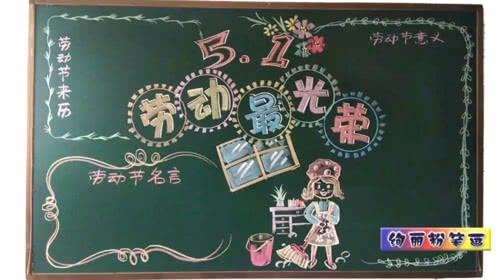 5.1
劳动节意义
劳动节来历
劳动最光荣
劳动节名言
绚丽粉笔画